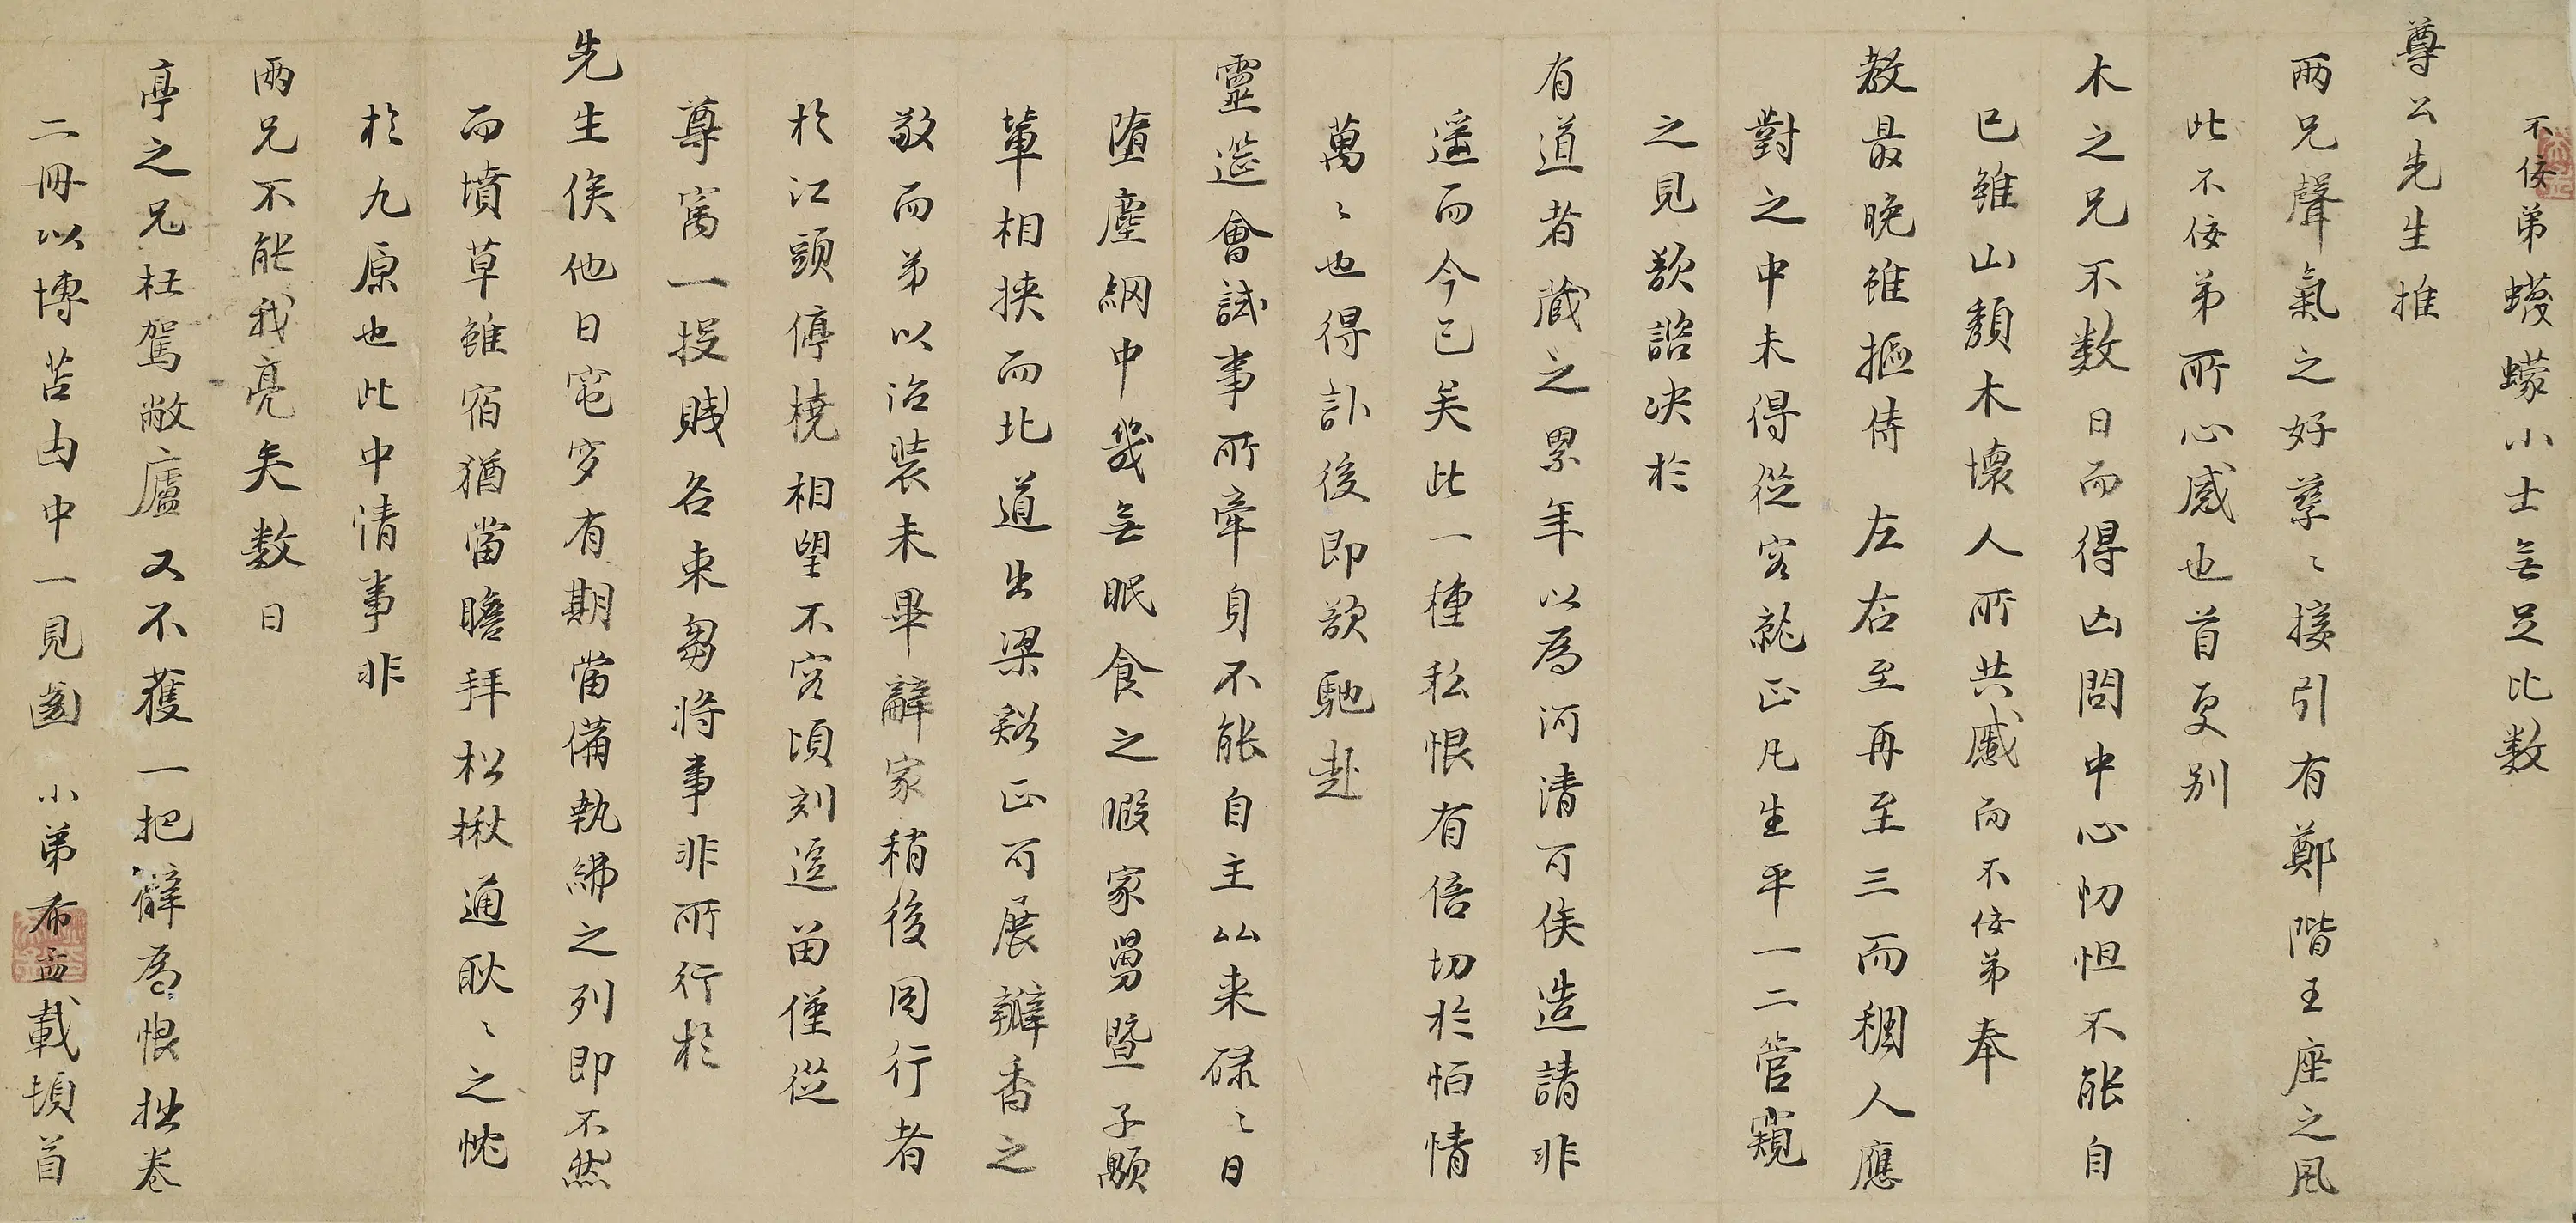 不佞弟蠛蠓小士無足比数
尊公先生推
兩兄聲氣之好孳〻接引有鄭階王座之風
此不佞弟所心感也首夏別
木之兄不数日而得凶問中心忉怛不能自
已雖山頹木壞人所共戚而不佞弟奉
教最晚雖摳侍左右至再至三而稠人應
對之中未得從容就正凡生平一二管窺
之見欲諮決於
有道者蔵之累年以為河清可俟造請非
遥而今已矣此一種私恨有倍切於怕情
萬〻也得訃後即欲馳赴
靈筵會試事所牽身不能自主䒑来碌〻日
墮塵網中幾無眠食之暇家舅暨子顒
輩相挾而北道出梁谿正可展瓣香之
敬而弟以治裝未畢辭家稍後同行者
於江頭停橈相望不容頃刻逗留僅從
尊寓一投賎名束芻將事非所行於
先生俟他日窀穸有期當備執紼之列即不然
而墳草雖宿猶當瞻拜松楸通耿〻之忱
於九原也此中情事非
兩兄不能我亮矣数日
亭之兄枉駕敝廬又不獲一把臂為恨拙卷
二冊以博苫凷中一見圅 小弟希孟載頓首